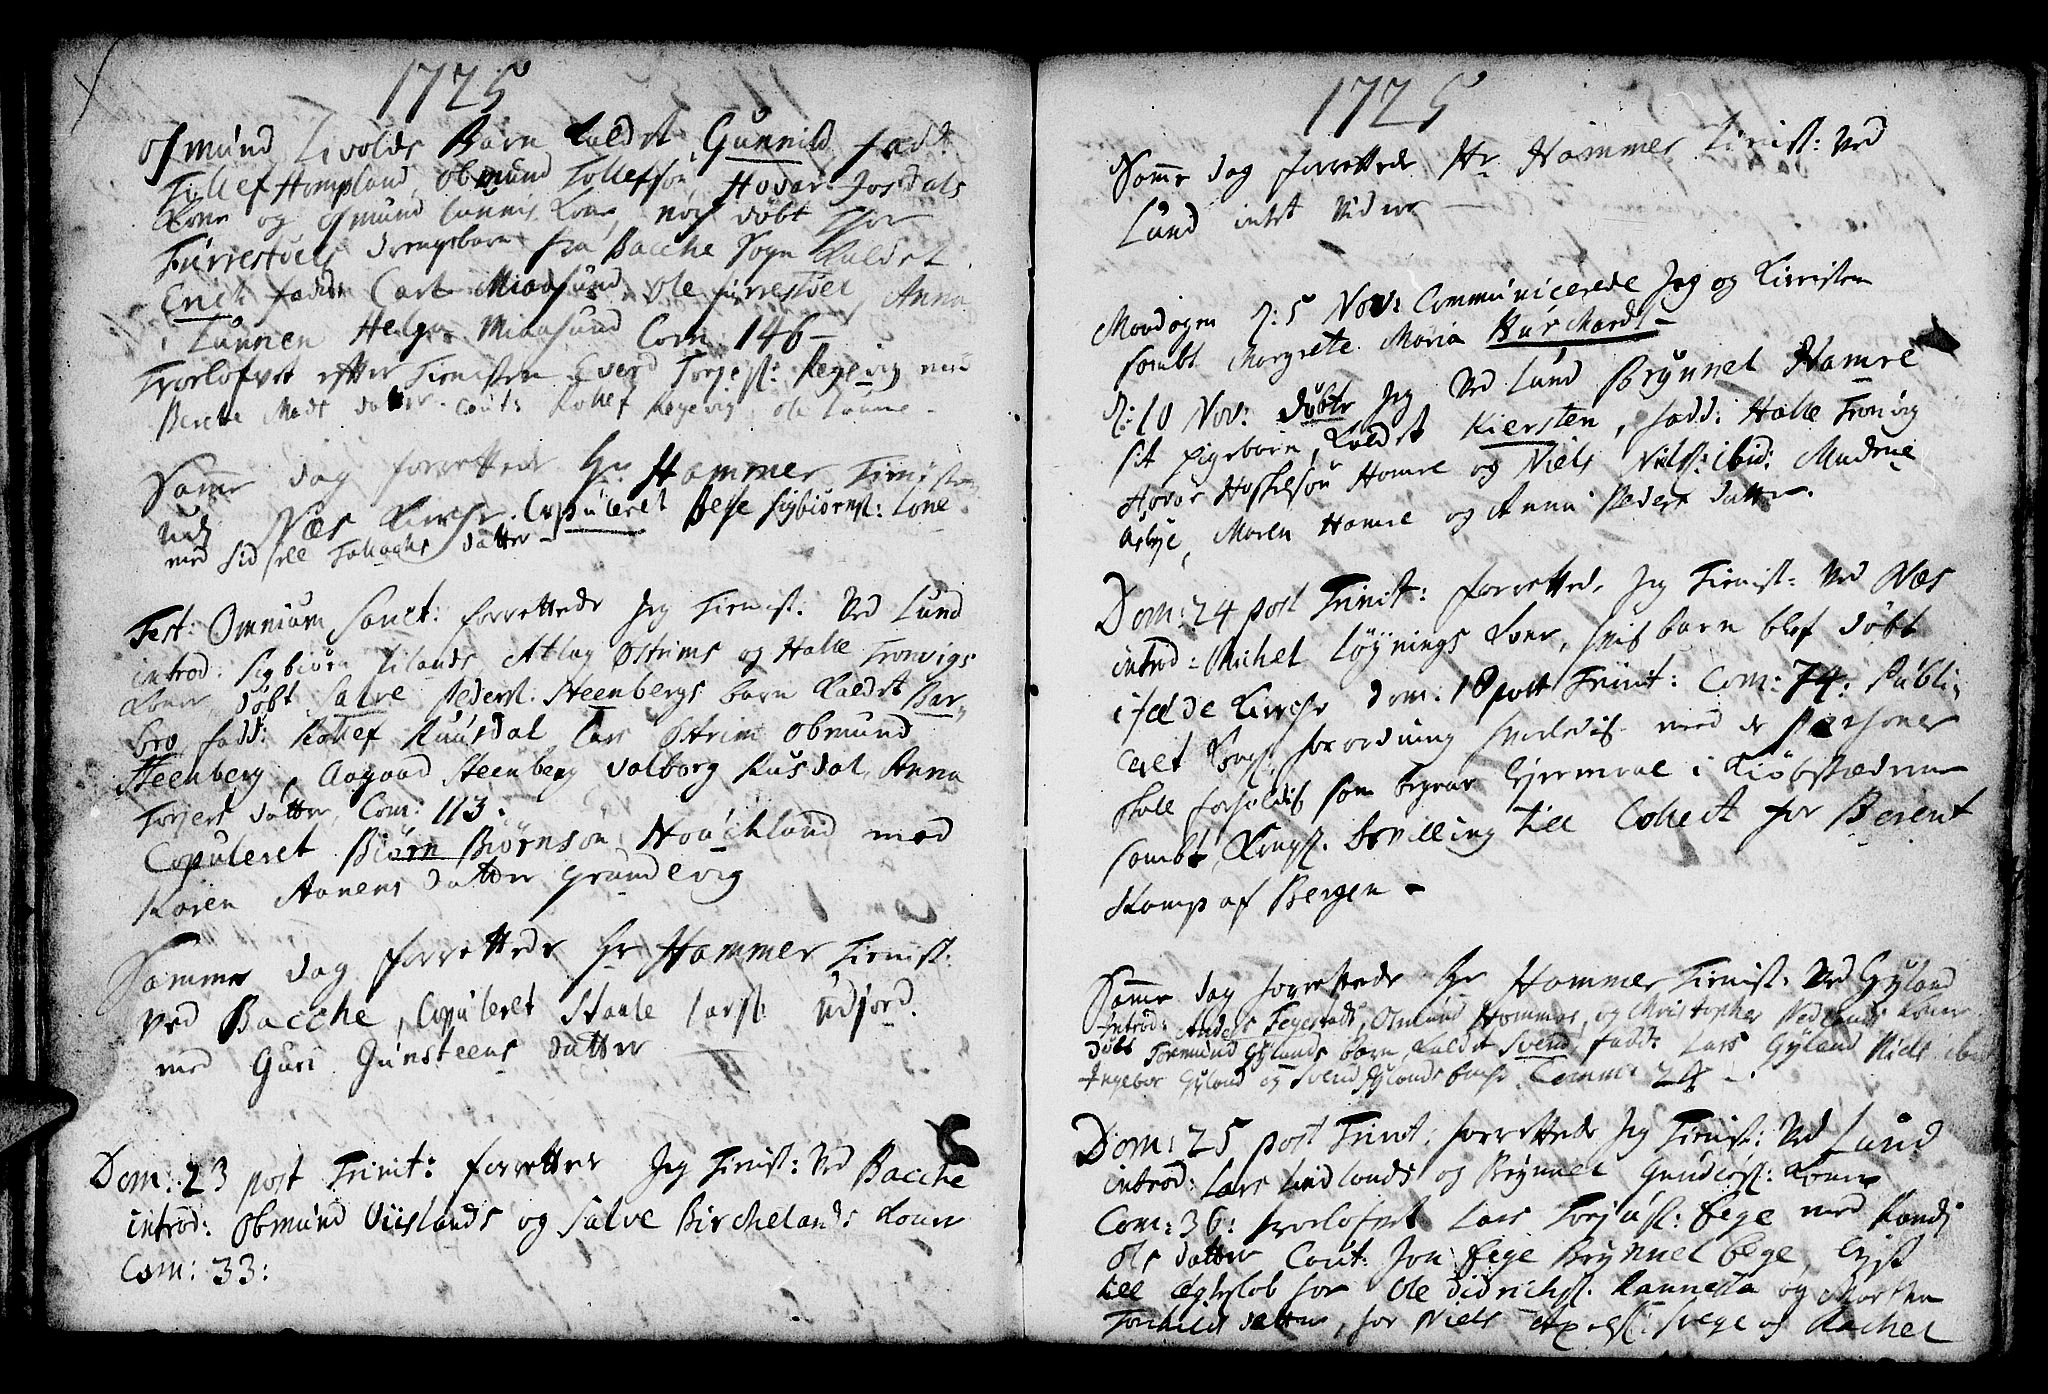 1725
Osmund Livolds Barn kaldet Gunnild fadd:
Tollef Hompland, Obmund Tollefsøn, Hovar Josdals
Kone og Osmund Lunnis Kone, noch døbt Thor
Fürrestøels drengebarn fra Bacche Sogn kaldet
Erich fadd: Carl Miaasund, Ole fürrestøel Anna
i Lunnen Helga Miaasund Com: 146 –
Trolofvet efter Tienisten Everd Torgers: Regevig med
Berthe Mads datter. Caut: Rollef Regevig, Ole Lunne –
Samme dag forrettede Hr Hammer Tienisten
udj Næs Kirche. Copuleret Peße Sigbiørns: Lone
med Sidsell Tollachs datter
Fest: Omnium Sanct: forrettede Jeg Tienist. Ved Lund
introd: Sigbiørn Eilands Atlag Østrims og Halle Tronvigs
Koner, døbt Salve Peders: Steenbergs barn kaldet Bar-
bro, fadd: Rollef Ruusdal Lars Østrim Obmund
Steenberg, Aagaad Steenberg Valborg Rusdal, Anna
Torjers datter, Com: 113.
Copuleret Biørn Biørnsøn Houchland med
Karen Aanens datter Grundevig
Samme dag forrettede Hr Hammer Tienist:
ved Bacche, Copuleret Staale Lars: Udfiord.
med Guri Gunsteens datter
Dom: 23 post Trinit: forrettede Jeg Tienist: Ved Bacche
introd: Obmund Viislands og Salve Birchelands Koner
Com: 33:
1725
Samme dag forrettede Hr Hammer Tienist: Ved
Lund intet videre –
Mandagen d: 5 Nov: Communicerede Jeg og Kieristen
sambt Margrete Maria Burchardt –
d: 10 Nov: døbte Jeg Ved Lund Brynnel Hamre
sit pigebarn, kaldet Kiersten, fadd: Halle Tronvig
Hovar Hoskelsøn Hamre og Niels Niels: ibid: Madme
Arbye, Maren Hamre og Anna Peders datter.
Dom: 24 post Trinit: forrettede Jeg Tienist: Ved Næs
introd: Michel Løynings Kone, hvis barn blef døbt
i felde Kirche Dom: 18 post Trinit: Com: 74: Publi-
ceret Kongl: forordning hvorledis med de Personer
skall forholdis som begaar Leyermaal i Kiøbstæderne
sambt Kongl. bevilling till Collect for Berent
Kamp af Bergen –
Samme dag forrettede Hr Hammer Tienist: Ved Gyland
Introd: Anders Fegestads, Osmund Hommas, og Christopher Vedlands Koner
døbt Tormund Gylands barn, kaldet Svend, fadd: Lars Gyland Niels ibid
Ingebor Gyland og Svend Gylands Com: 24 –.
Dom: 25 post Trinit: forrettede Jeg Tienist: Ved Lund
introd: Lars Lindlands og Brynnel Gunders: Koner
Com: 36: trolofvet Lars Torjus: Eege med Randj
Ols datter Caut: Jon Eege Brynnel Eege, Lyst
till Egteskab for Ole Didrichs: Rannestad og Marthe
Torchilds datter, for Niels Axels: Svege og Rachel